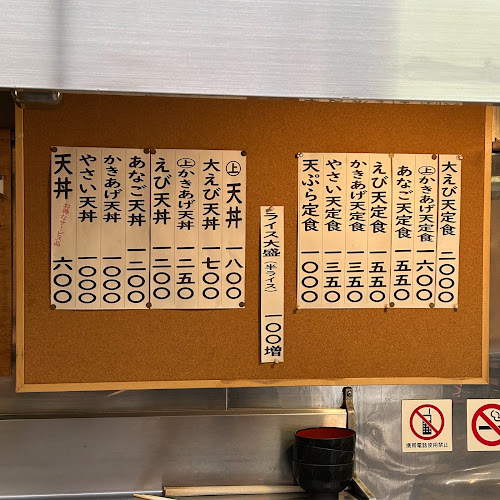 大えび天定食 二〇〇〇
㊤かきあげ天定食 一六〇〇
あなご天定食 一五五〇
えび天定食 一五五〇
かきあげ天定食 一三五〇
やさい天定食 一三五〇
天ぷら定食 一〇〇〇
ライス大盛(半ライス) 一〇〇増
㊤天丼 八〇〇
大えび天丼 一七〇〇
㊤かきあげ天丼 一二五〇
えび天丼 一二〇〇
あなご天丼 一二〇〇
かきあげ天丼 一〇〇〇
やさい天丼 一〇〇〇
天丼 お得なサービス品 六〇〇
携帯電話使用禁止